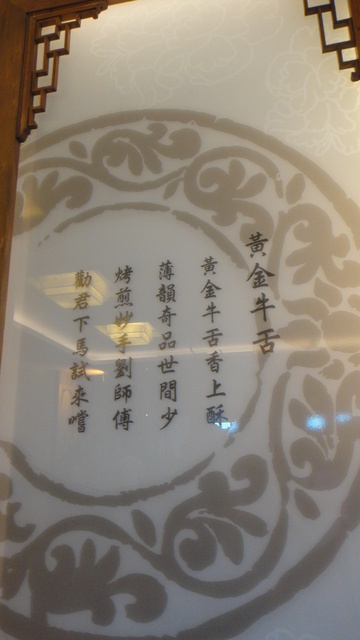 黃金牛舌
黃金牛舌香上酥
薄韻奇品世間少
烤煎妙手劉師傅
勸君下馬試來嚐